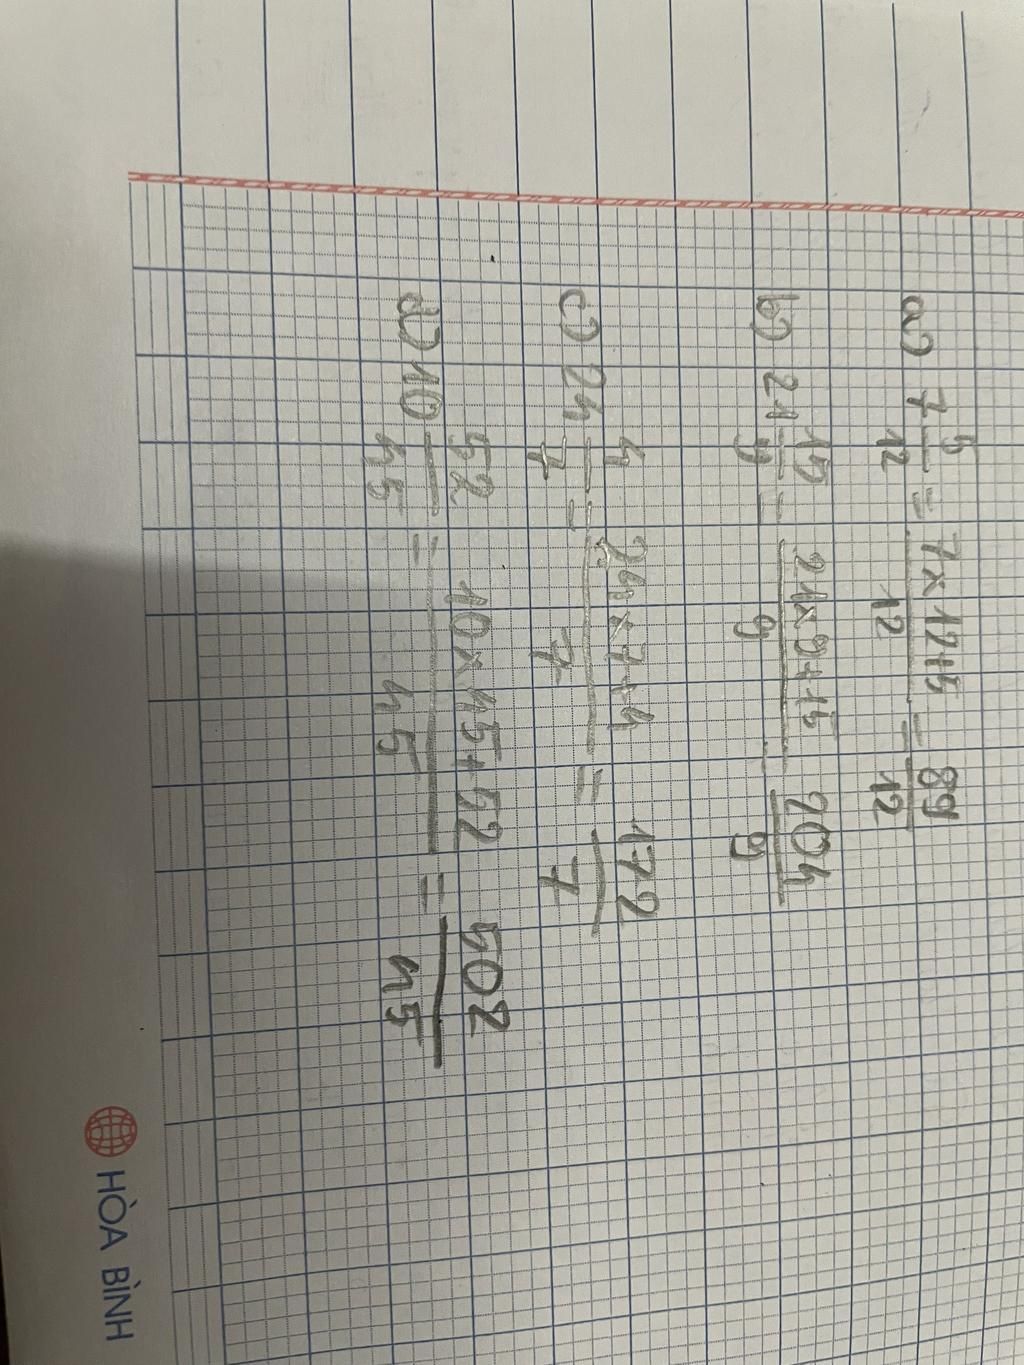 a) 7 5/12 = 7×12+5/12 = 89/12
b) 21 15/9 = 21×9+15/9 = 204/9
c) 24 4/7 = 24×7+4/7 = 172/7
d) 10 52/45 = 10×45+52/45 = 502/45
HÒA BÌNH